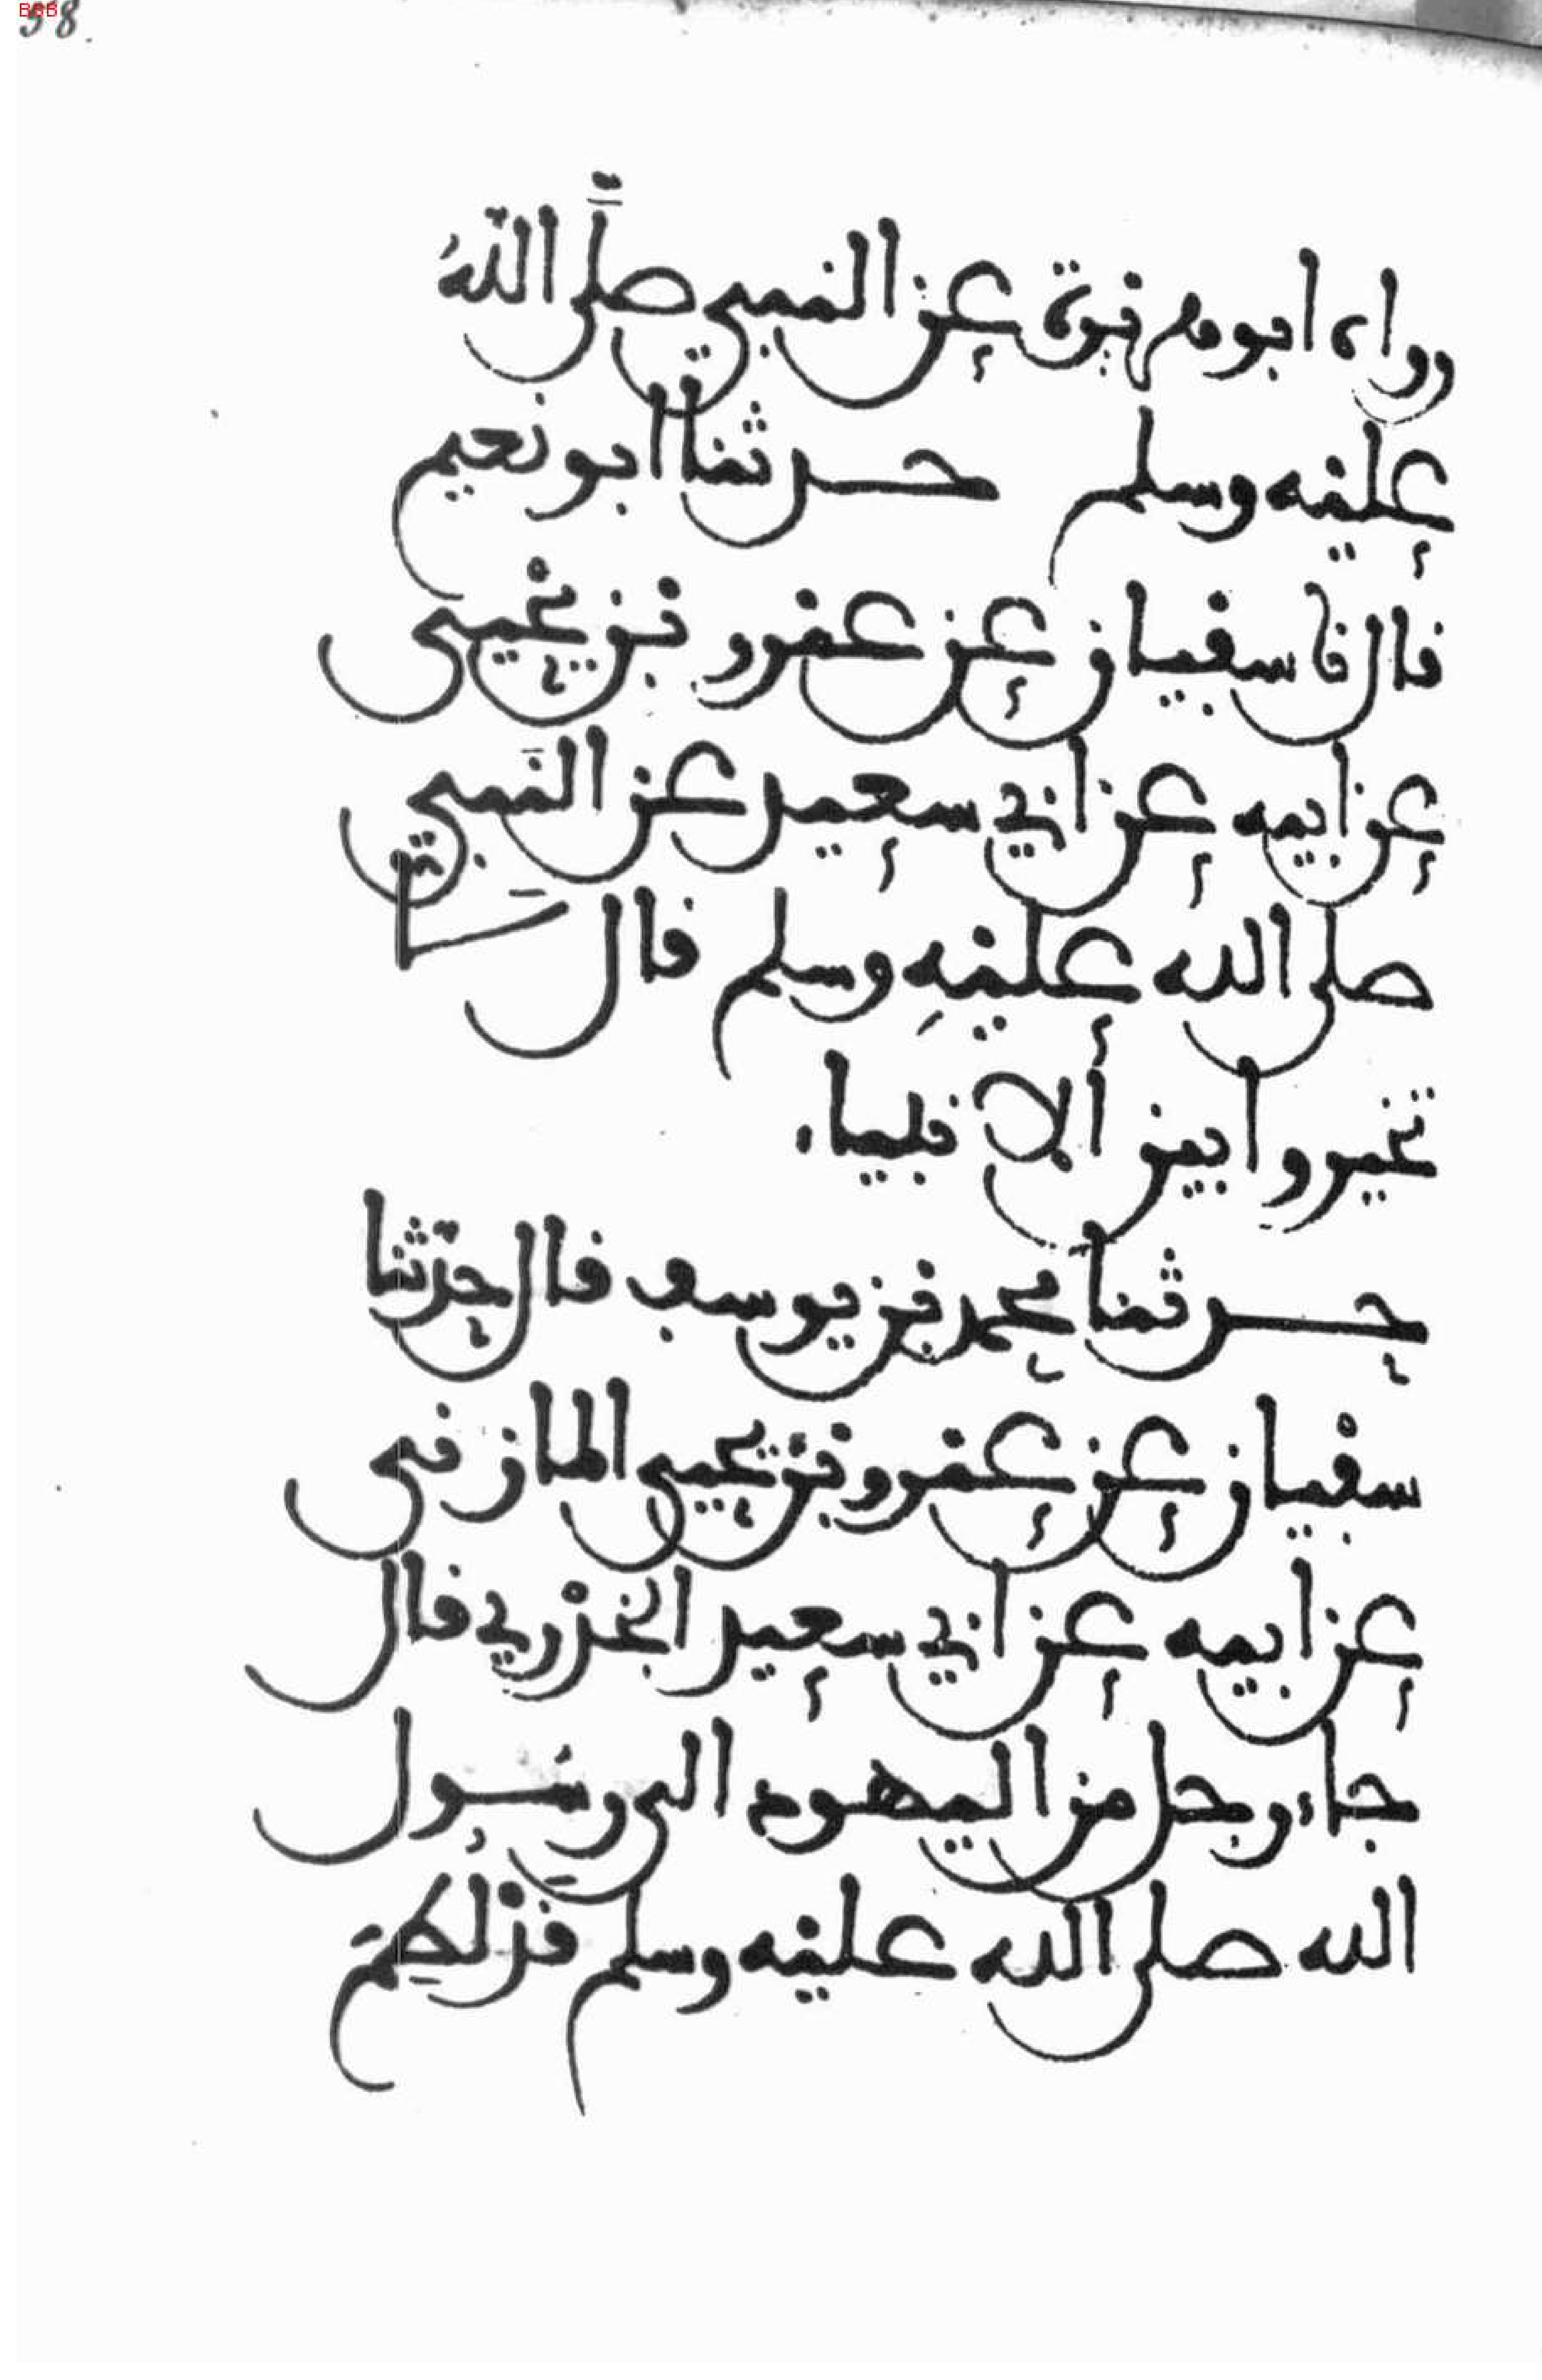 58.
رواه ابو هريرة عن النبي صلى الله
عليه وسلم حدثنا ابو نعيم
قال نا سفيان عن عمرو بن يحيى
عن ابيه عن ابي سعيد عن النبي
صلى الله عليه وسلم قال لا
تخيروا بين ألانبياء
حدثنا محمد بن يوسف قال حدثنا
سفيان عن عمرو بن يحيى المازني
عن ابيه عن ابي سعيد الخدري قال
جاء رجل من اليهود الى رسول
الله صلى الله عليه وسلم قد لطم